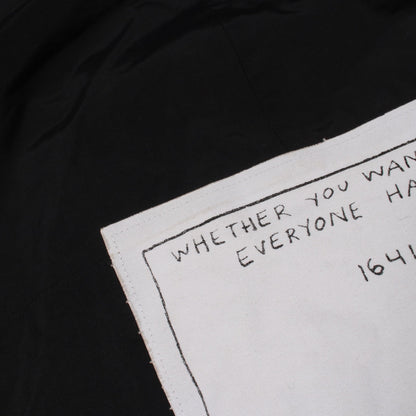 WHETHER YOU WAN
EVERYONE HA
1641